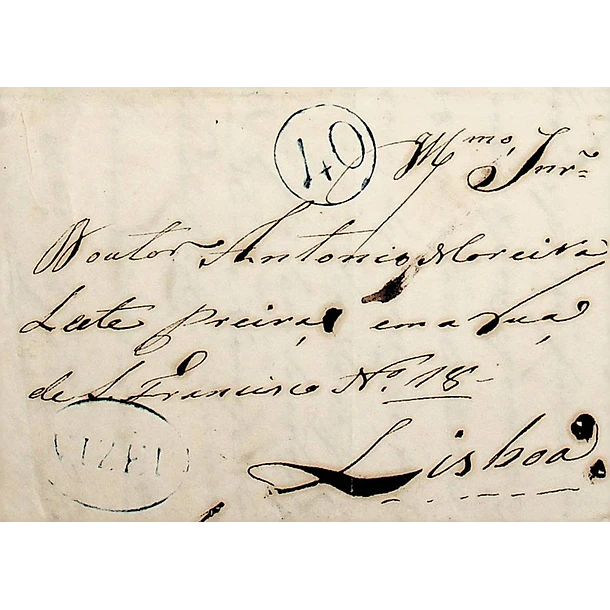 40
Illmo. Snr.
Doutor Antonio Moreira
Leite Preira, em a Rua
de S. Francisco No. 18-
Lisboa
VIZELLA